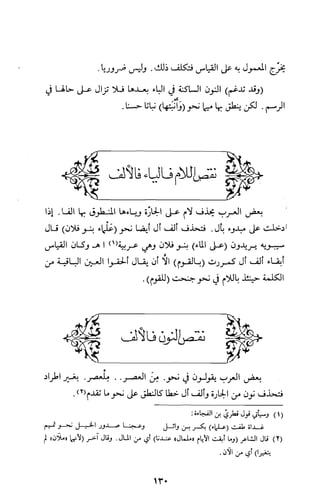 يخرّج المعمول به على القياس فتكلف ذلك. وليس ضروريا.
(وقد تدغم) النون الساكنة في الباء بعدها فلا تزال على حالها في
الرسم. لكن ينطق بها ميما نحو (وأنبتها) نباتا حسنا.
نقص اللام فالياء فالألف
بعض العرب يحذف لام على الجارّة وياءها المنطوق بها ألفا. إذا
ادخلت على مبدوء بأل. فتحذف ألف أل أيضا نحو (علماء بنو فلان) قال
سيبويه يريدون (على الماء) بنو فلان وهي عربية (١) ا هـ وكان القياس
ابقاء ألف أل كمررت (بالقوم) الا أن يقال ألحقوا العين الباقية من
الكلمة حينئذ باللام في نحو جنحت (للقوم).
نقص النون فالألف
بعض العرب يقولون في نحو. مِنَ العصر.. مِلْعصر. بغير اطراد
فتحذف نون من الجارة وألف أل خطا كالنطق على نحو ما تقدم (٢).
(١) وسيأتي قول قطريّ بن الفجاءة:
غداة طفت (علماء) بكر بن وائل وعجنا صدور الخيل نحو تميم
(٢) قال الشاعر (وما أبقت الأيام «ملمال» عندنا) أي من المال. وقال آخر (لأنهما «ملآن» لم
يتغيرا) أي من الآن.
١٣٠